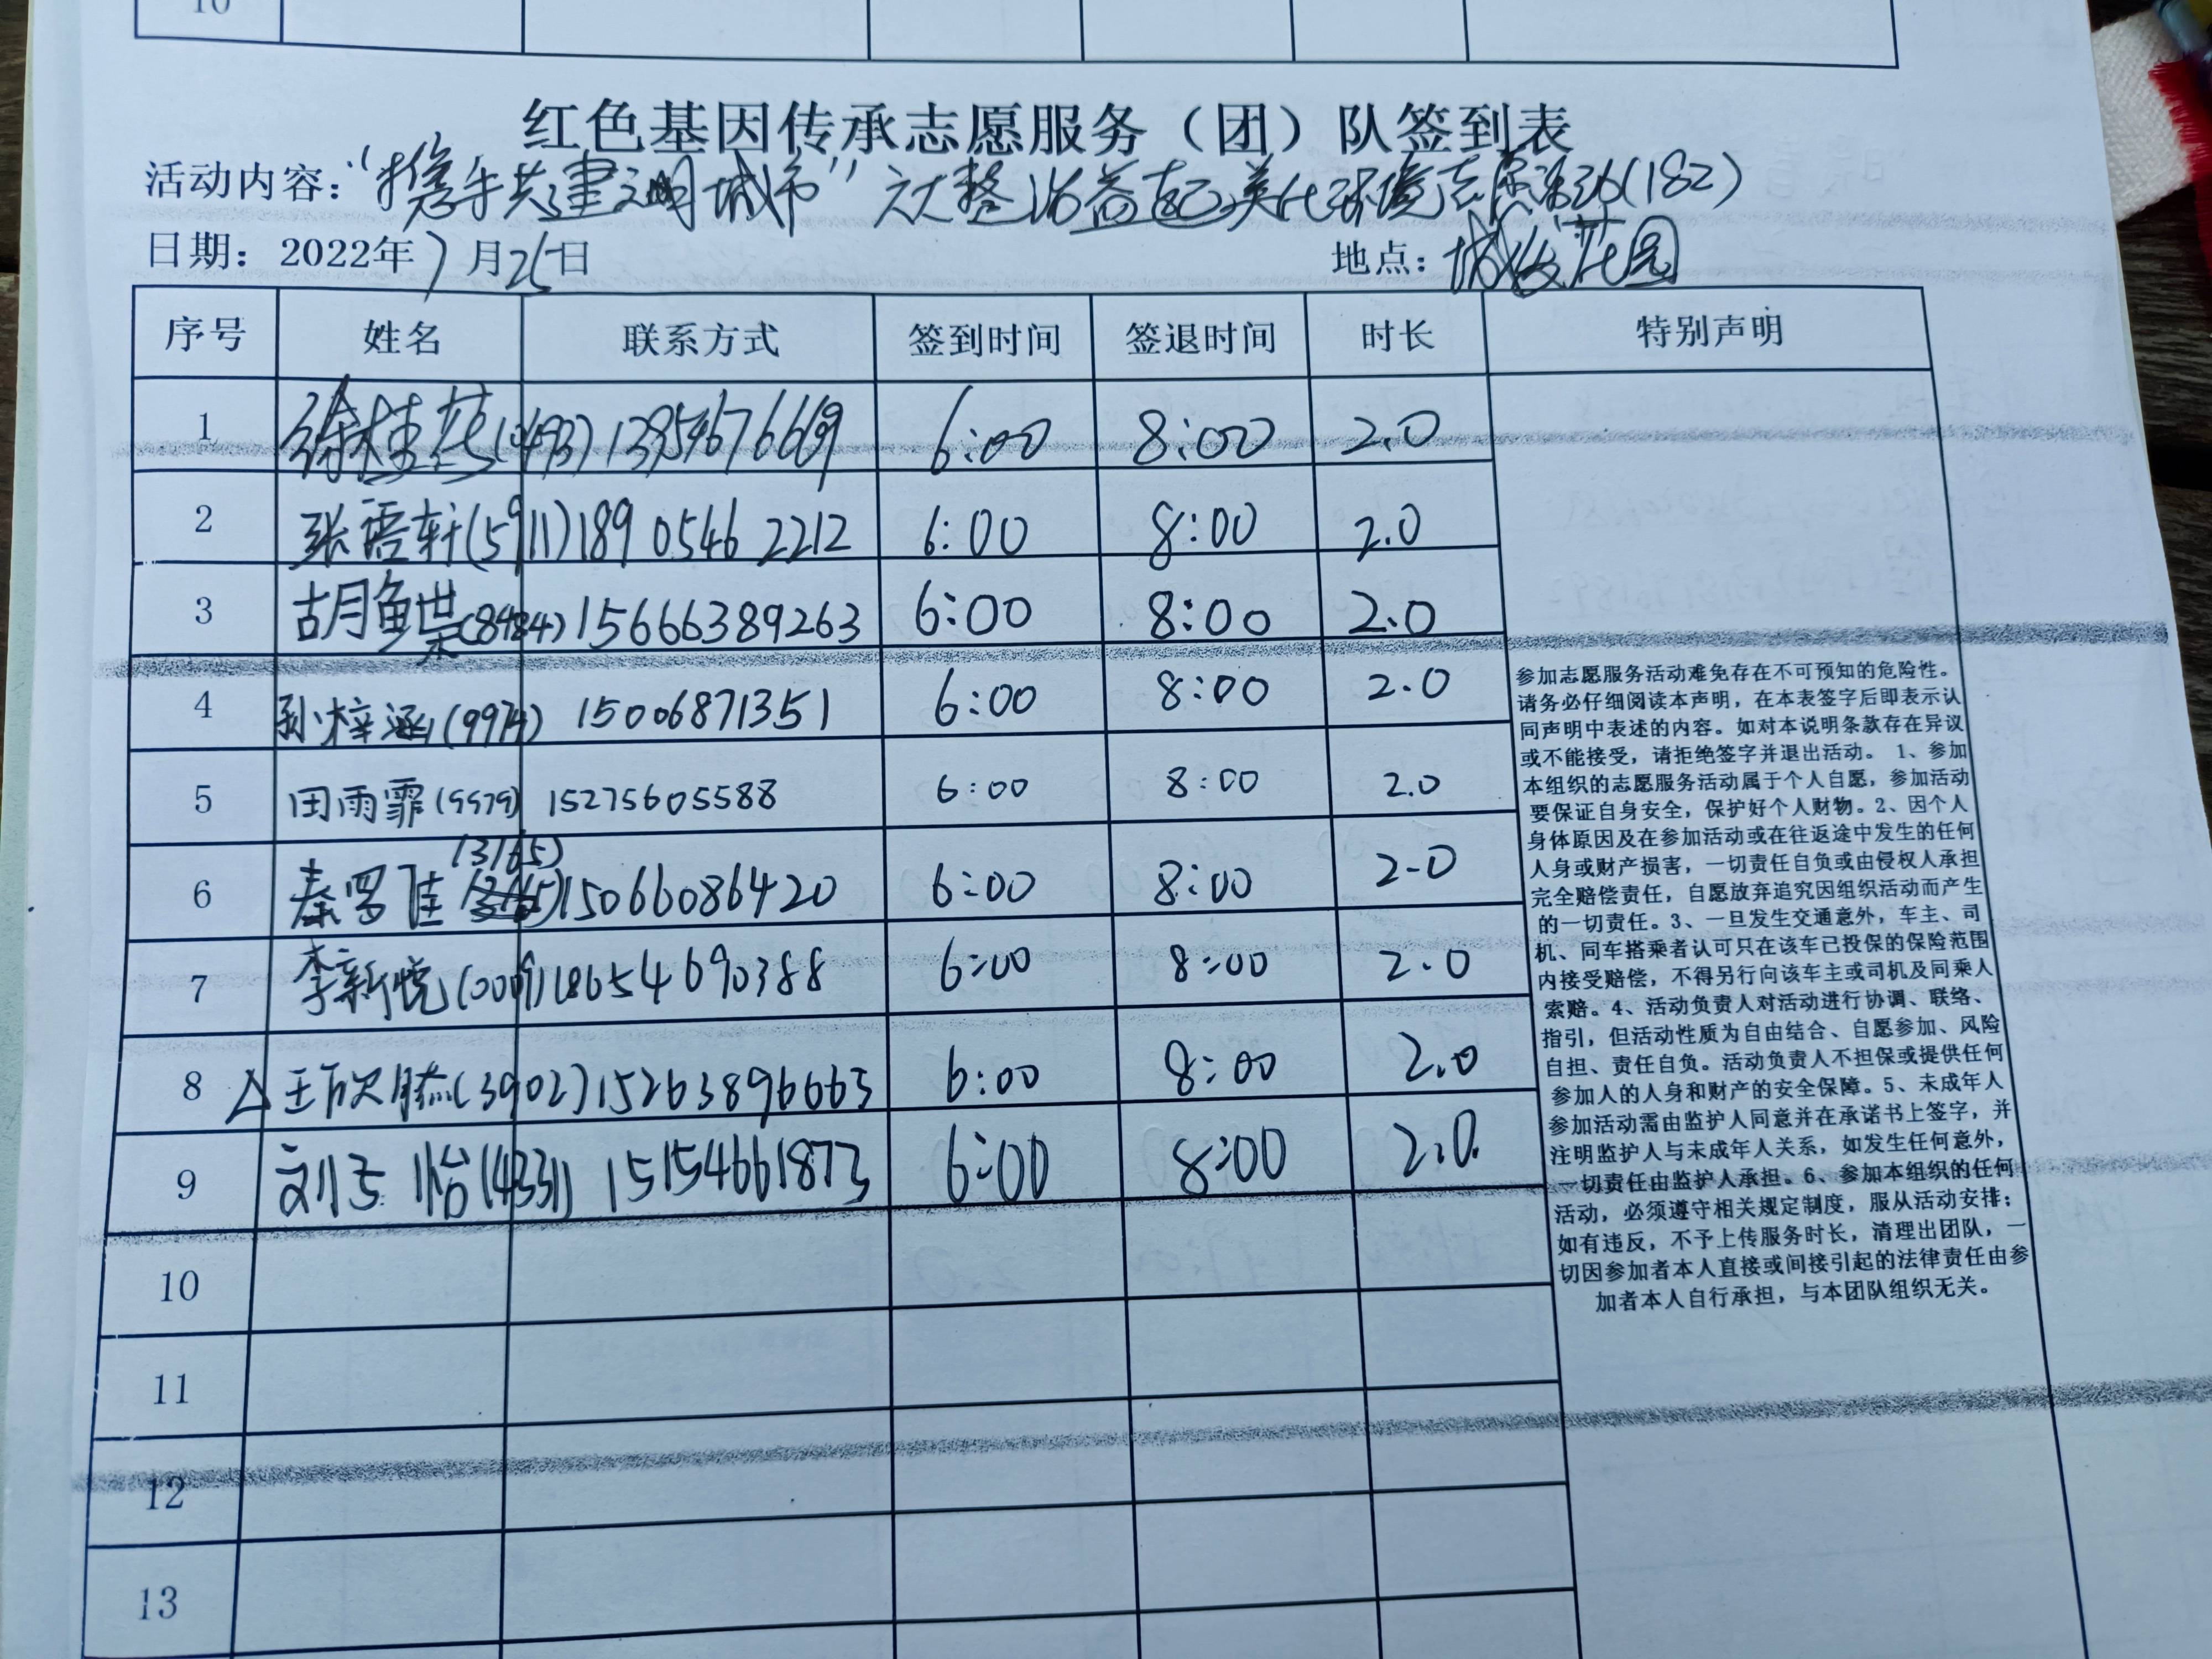 10
红色基因传承志愿服务（团）队签到表
活动内容："携手共建文明城市"六大整治益起美化环境志愿活动(182)
日期：2022年7月25日 地点：城投花园
序号 姓名 联系方式 签到时间 签退时间 时长 特别声明
1 徐桂芸 6:00 8:00 2.0
2 张语轩(5911) 189 0546 2212 6:00 8:00 2.0
3 胡鱼世(8484) 15666389263 6:00 8:00 2.0
4 孙梓涵(9974) 15006871351 6:00 8:00 2.0
5 田雨霏(9579) 15275605588 6:00 8:00 2.0
(3165)
6 秦罗佳 15066086420 6:00 8:00 2.0
7 李新悦(0009) 18654690388 6:00 8:00 2.0
8 △王欣(3902) 15263896663 6:00 8:00 2.0
9 刘子怡(4331) 15154661873 6:00 8:00 2.0
10
11
12
13
参加志愿服务活动难免存在不可预知的危险性。
请务必仔细阅读本声明，在本表签字后即表示认
同声明中表述的内容。如对本说明条款存在异议
或不能接受，请拒绝签字并退出活动。 1、参加
本组织的志愿服务活动属于个人自愿，参加活动
要保证自身安全，保护好个人财物。2、因个人
身体原因及在参加活动或在往返途中发生的任何
人身或财产损害，一切责任自负或由侵权人承担
完全赔偿责任，自愿放弃追究因组织活动而产生
的一切责任。3、一旦发生交通意外，车主、司
机、同车搭乘者认可只在该车已投保的保险范围
内接受赔偿，不得另行向该车主或司机及同乘人
索赔。4、活动负责人对活动进行协调、联络、
指引，但活动性质为自由结合、自愿参加、风险
自担、责任自负。活动负责人不担保或提供任何
参加人的人身和财产的安全保障。5、未成年人
参加活动需由监护人同意并在承诺书上签字，并
注明监护人与未成年人关系，如发生任何意外，
一切责任由监护人承担。6、参加本组织的任何
活动，必须遵守相关规定制度，服从活动安排；
如有违反，不予上传服务时长，清理出团队，一
切因参加者本人直接或间接引起的法律责任由参
加者本人自行承担，与本团队组织无关。